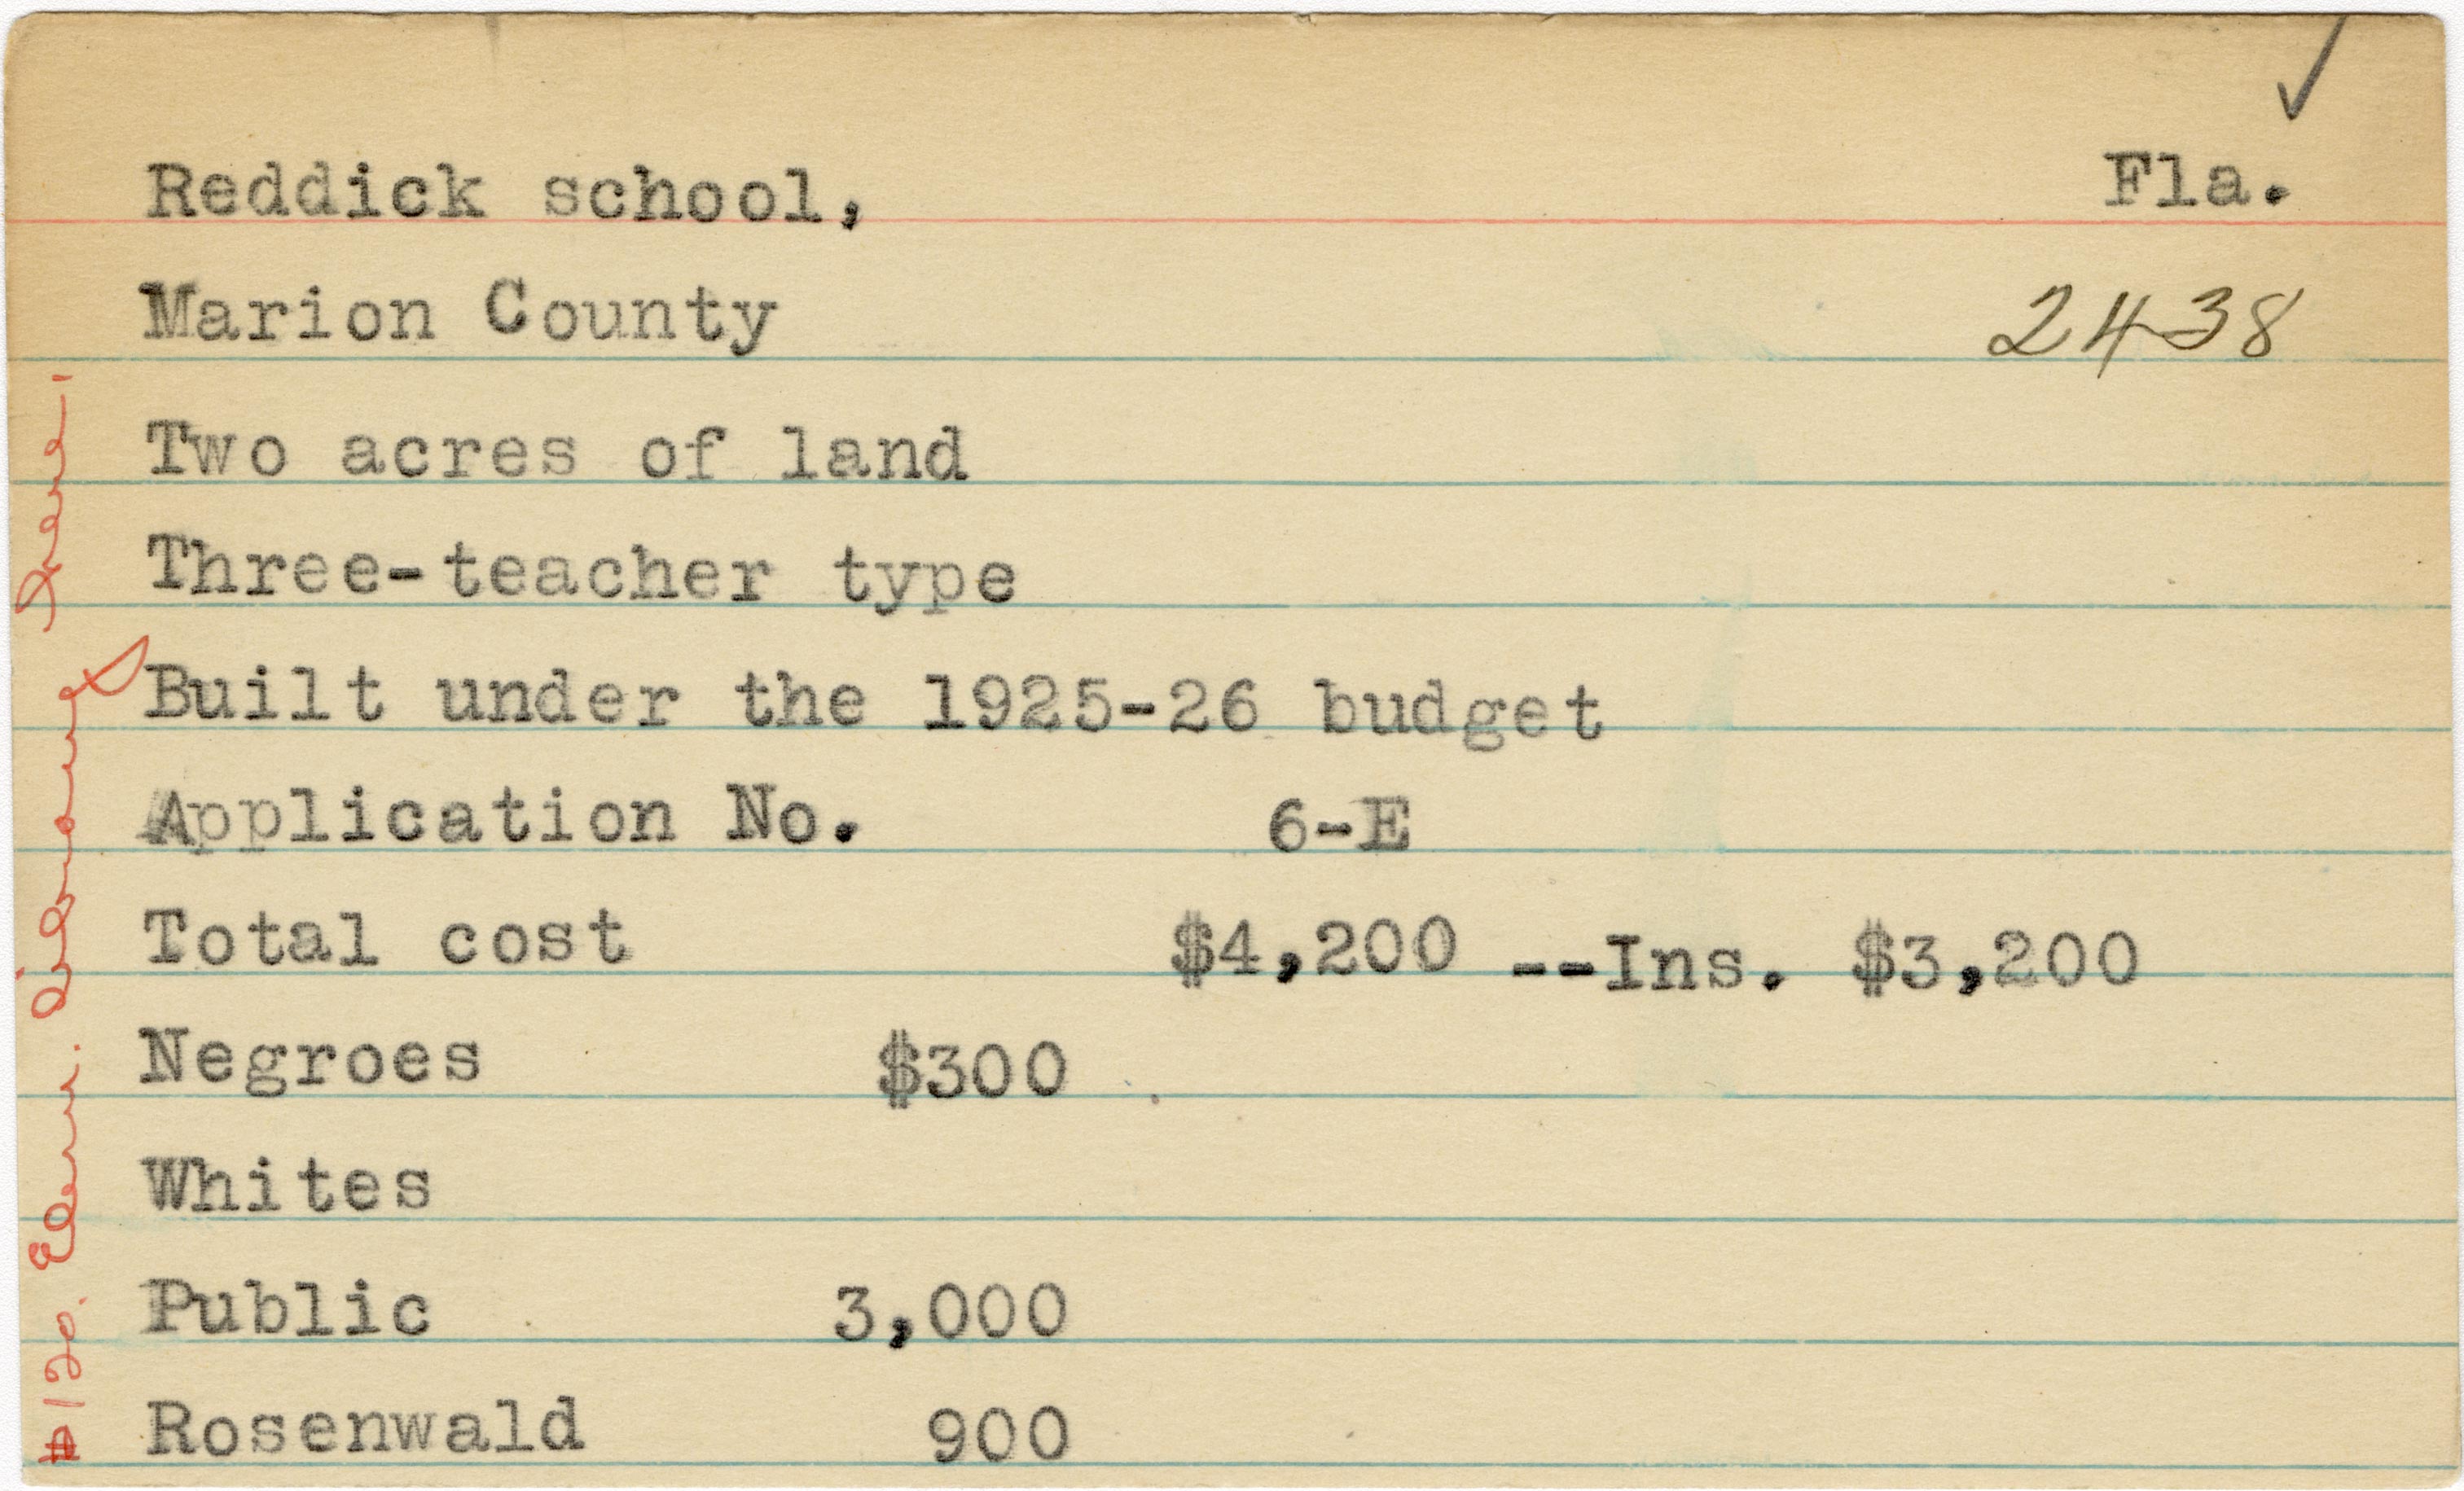 ✓
Reddick school, Fla.
Marion County 2438
Two acres of land
Three-teacher type
Built under the 1925-26 budget
Application No. 6-E
Total cost $4,200 --Ins. $3,200
Negroes $300
Whites
Public 3,000
Rosenwald 900
#120. Elem. Library